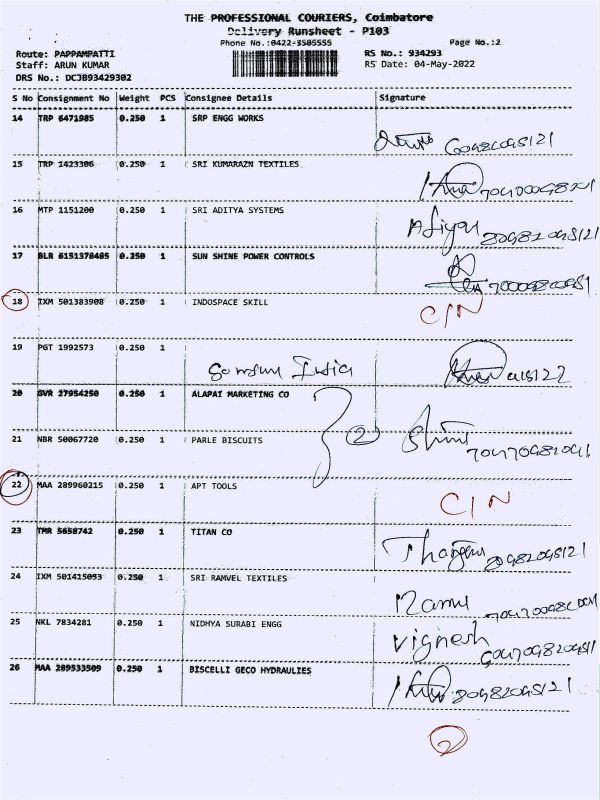 THE PROFESSIONAL COURIERS, Coimbatore
Delivery Runsheet - P103
Phone No.:0422-3505555 Page No.:2
Route: PAPPAMPATTI RS No.: 934293
Staff: ARUN KUMAR RS Date: 04-May-2022
DRS No.: DCJB93429302
S No Consignment No Weight PCS Consignee Details Signature
14 TRP 6471985 0.250 1 SRP ENGG WORKS
15 TRP 1423306 0.250 1 SRI KUMARAZN TEXTILES
16 MTP 1151200 0.250 1 SRI ADITYA SYSTEMS
17 BLR 6151378485 0.250 1 SUN SHINE POWER CONTROLS
18 IXM 501383908 0.250 1 INDOSPACE SKILL C/N
19 PGT 1992573 0.250 1
India
20 GVR 27954250 0.250 1 ALAPAI MARKETING CO
21 NBR 50067720 0.250 1 PARLE BISCUITS 2
22 MAA 289960215 0.250 1 APT TOOLS C/N
23 TMR 5658742 0.250 1 TITAN CO
24 IXM 501415053 0.250 1 SRI RAMVEL TEXTILES
25 NKL 7834281 0.250 1 NIDHYA SURABI ENGG Vignesh
26 MAA 289533509 0.250 1 BISCELLI GECO HYDRAULIES
2